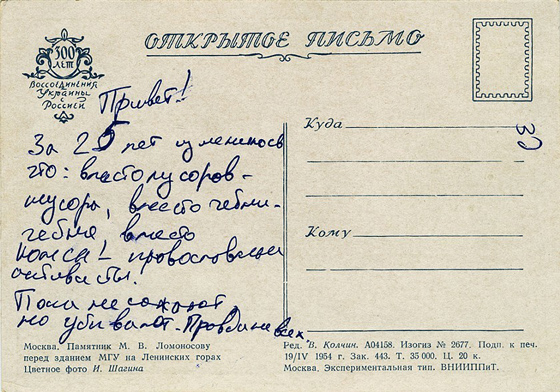 300
ЛЕТ
Воссоединения
Украины
с
Россией
ОТКРЫТОЕ ПИСЬМО
Привет!
За 25 лет изменилось
что: вместо мусоров -
мусора, вместо
вместо
- православные
активисты.
Пока не сажают
но убивают. Правда не всех.
Куда
Кому
39
Москва. Памятник М. В. Ломоносову
перед зданием МГУ на Ленинских горах
Цветное фото И. Шагина
Ред. В. Колчин. А04158. Изогиз № 2677. Подп. к печ.
19/IV 1954 г. Зак. 443. Т. 35 000. Ц. 20 к.
Москва. Экспериментальная тип. ВНИИППиТ.